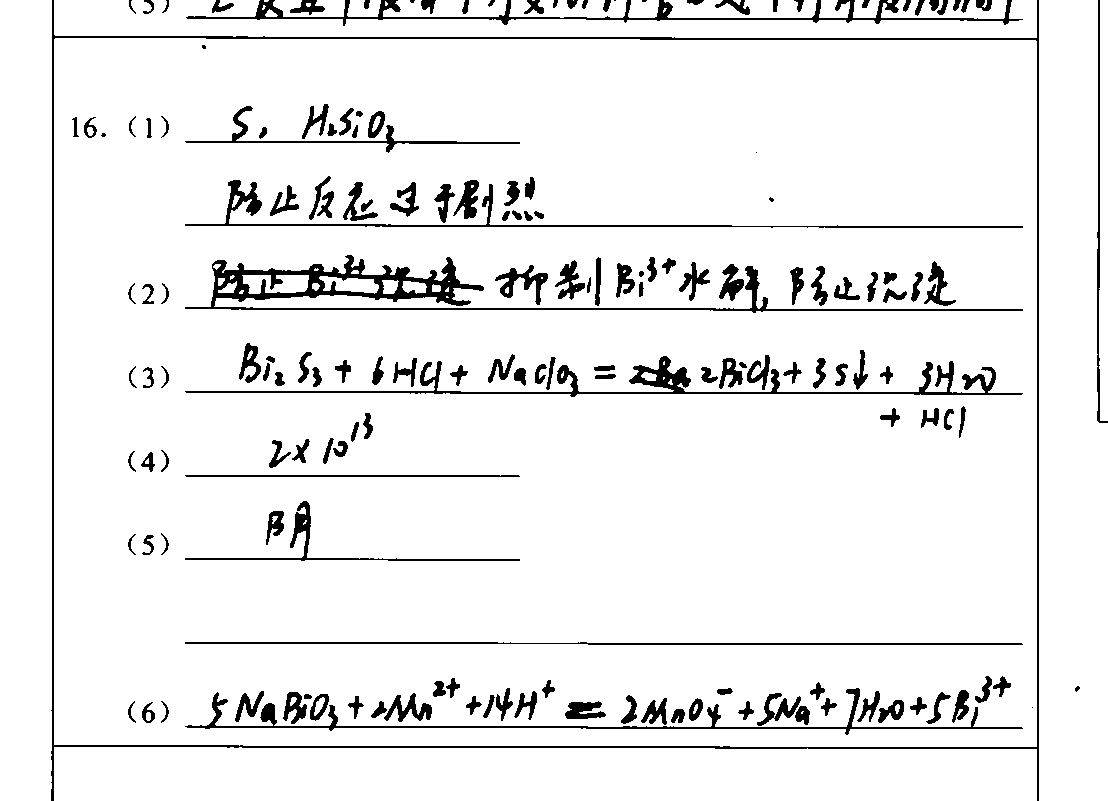 (5)
16. (1) S, H₂SiO₃
防止反应过于剧烈
(2) 抑制Bi³⁺水解, 防止沉淀
(3) Bi₂S₃ + 6HCl + NaClO₃ = 2BiCl₃ + 3S↓ + 3H₂O
+ HCl
(4) 2×10¹³
(5) 阴
(6) 5NaBiO₃ + 2Mn²⁺ + 14H⁺ = 2MnO₄⁻ + 5Na⁺ + 7H₂O + 5Bi³⁺